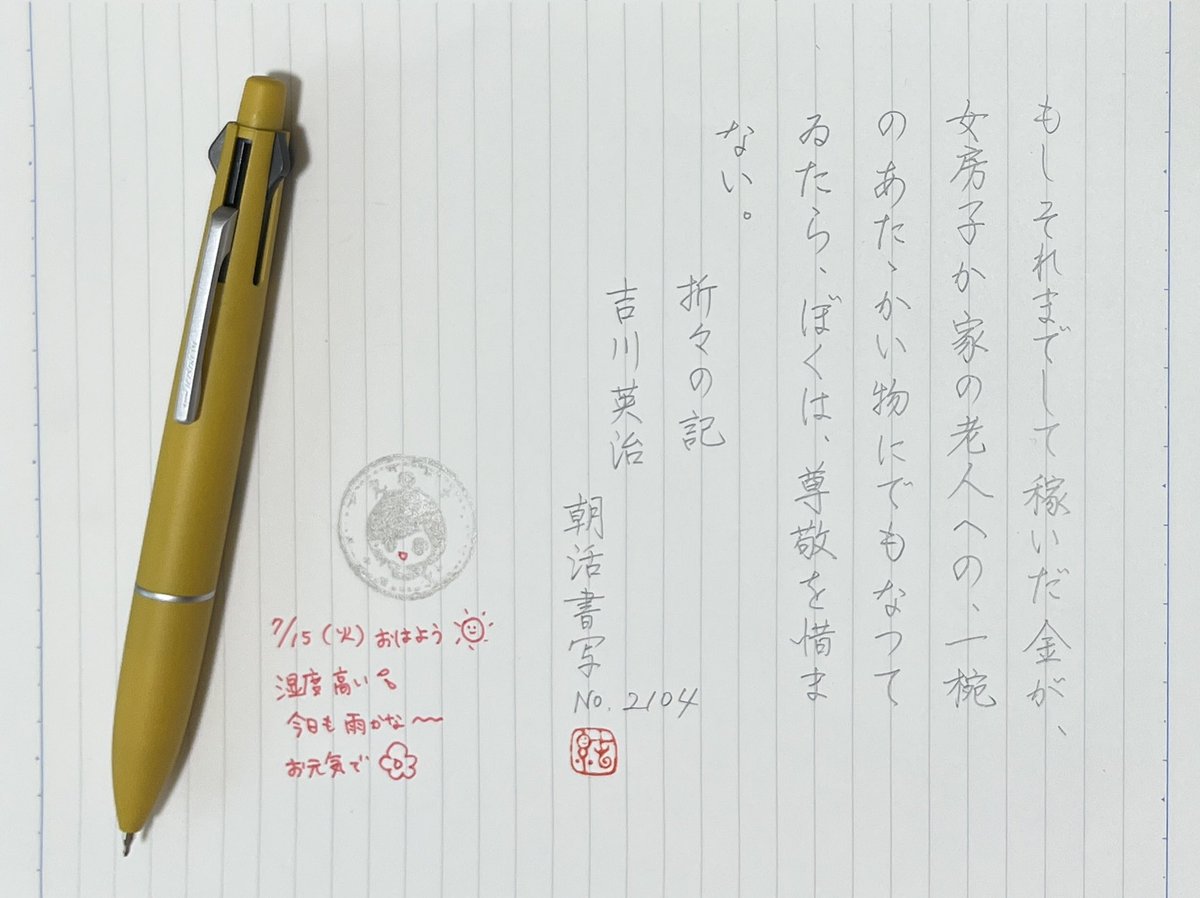 もしそれまでして稼いだ金が、
女房子か家の老人への、一椀
のあたゝかい物にでもなつて
ゐたら、ぼくは、尊敬を惜ま
ない。
折々の記
吉川英治
朝活書写
No. 2104
7/15（火）おはよう
湿度高い
今日も雨かな〜〜
お元気で